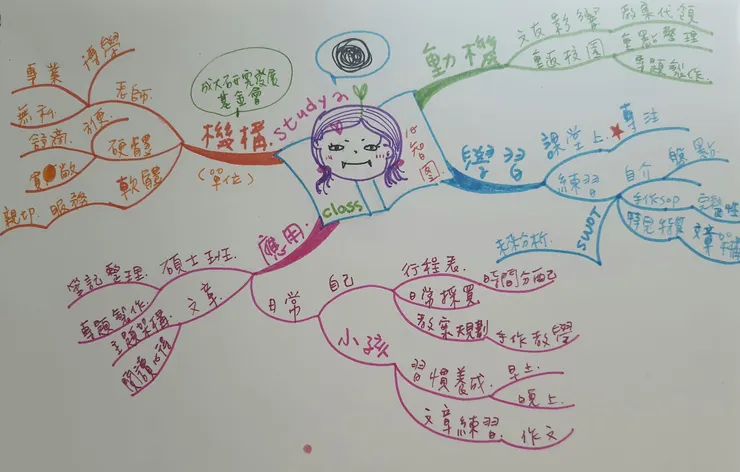 成大研究發展
基金會
study a
class
心智圖
動機
交友影響
教案代領
重返校園
重點整理
專題製作.
學習
課堂上
專注
練習
自介
優缺點
手作SOP
完整性
特見特質
文章架構
SWOT
未來分析.
機構.
(單位)
老師.
博學
專業
無私
硬體
方便
舒適
寬敞
軟體
服務
親切
應用.
碩士班.
登記整理.
文章.
專題製作.
主題架構.
閱讀心得
日常
自己
行程表.
時間分配
日常採買
教案規劃
手作教學
小孩
習慣養成.
早上.
晚上.
文章練習.
作文